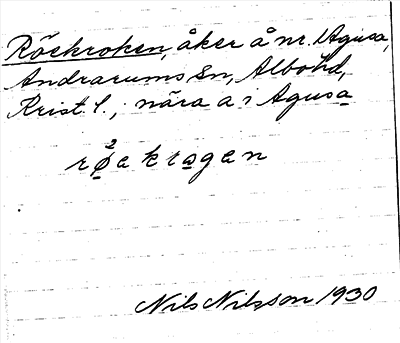 Röekroken, åker å nr. 1 Agusa,
Andrarums Sn, Albo hd,
Krist. l., nära a i Agusa
rø²ekrogen
Nils Nilsson 1930